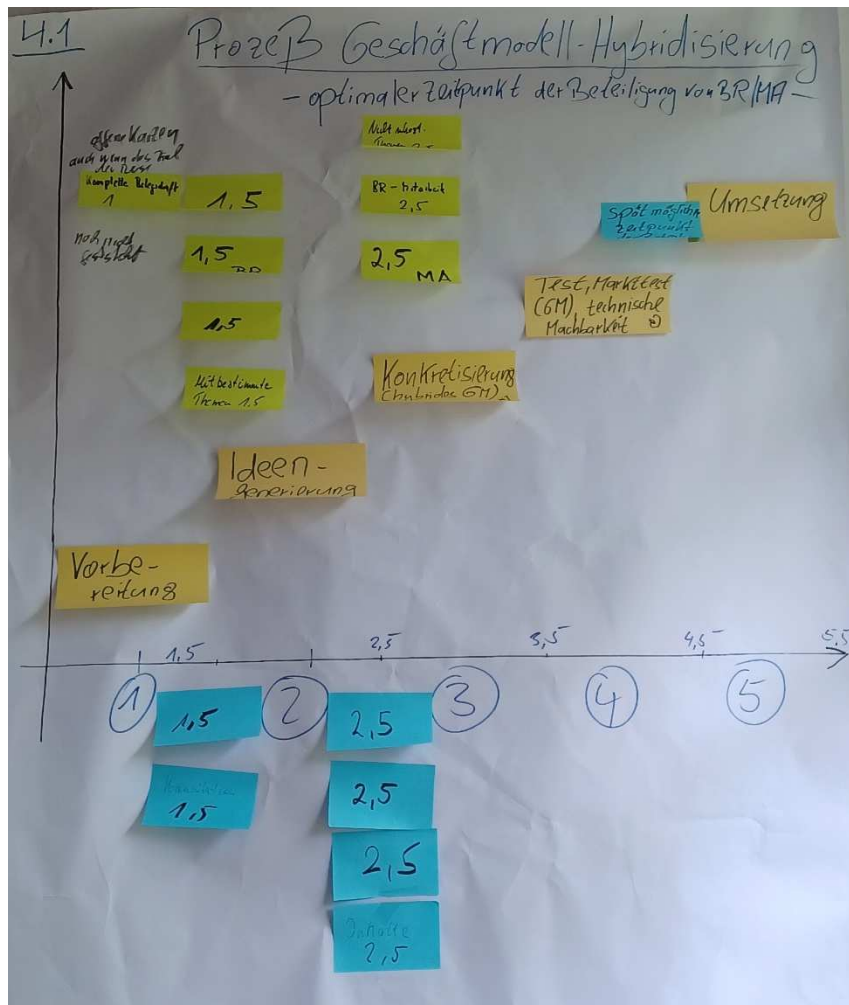 4.1
Prozeß Geschäftmodell-Hybridisierung
- optimaler Zeitpunkt der Beteiligung von BR/MA -
offene Karten
auch wenn das Ziel
Komplette Belegschaft
1
noch nicht
1,5
1,5
1,5
Mitbestimmte
Themen 1,5
Themen 2,5
BR - Mitarbeit
2,5
2,5
MA
spät möglich
zeitpunkt
Umsetzung
Test, Markttest
(GM), technische
Machbarkeit
Konkretisierung
(hybrides GM)
Ideen-
generierung
Vorbe-
reitung
1,5
2,5
3,5
4,5
5,5
1
2
3
4
5
1,5
1,5
2,5
2,5
2,5
Inhalte
2,5